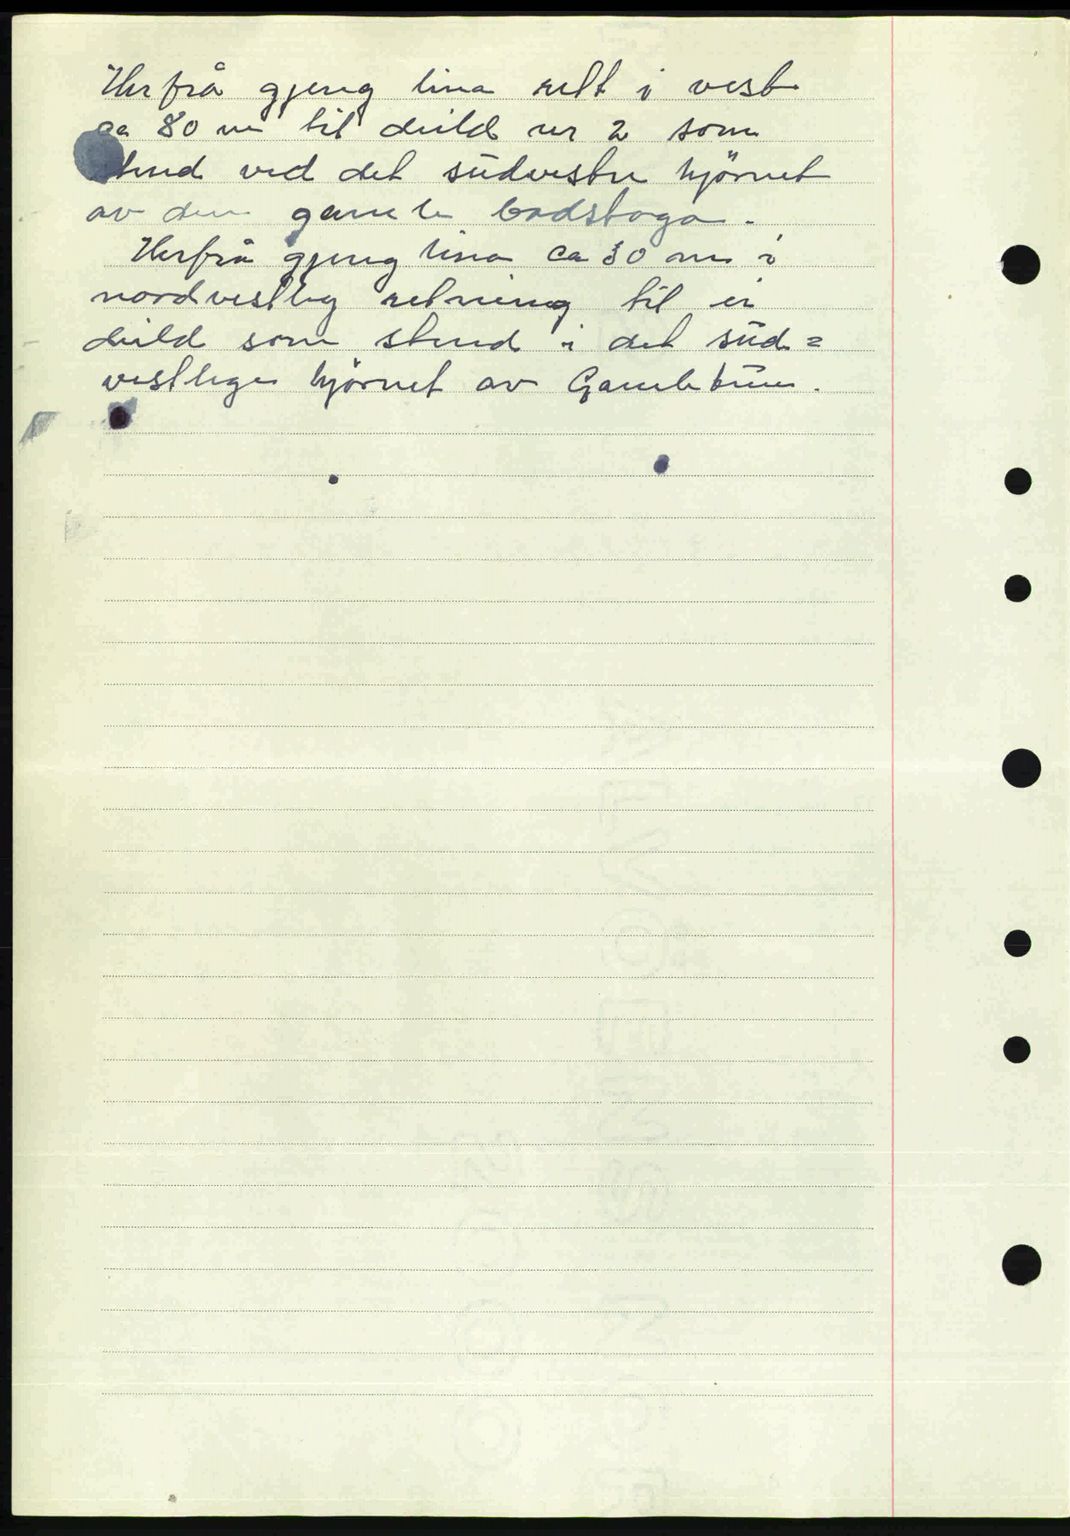 Herfrå gjeng lina rett i vest
ca 80 m til deild nr 2 som
stend ved det südvestre hjörnet
av den gamle badstoga.
Herfrå gjeng lina ca 30 m i
nordvestleg retning til ei
deild som stend i det süd=
vestlege hjörnet av Gamletunn.
ALVØENS